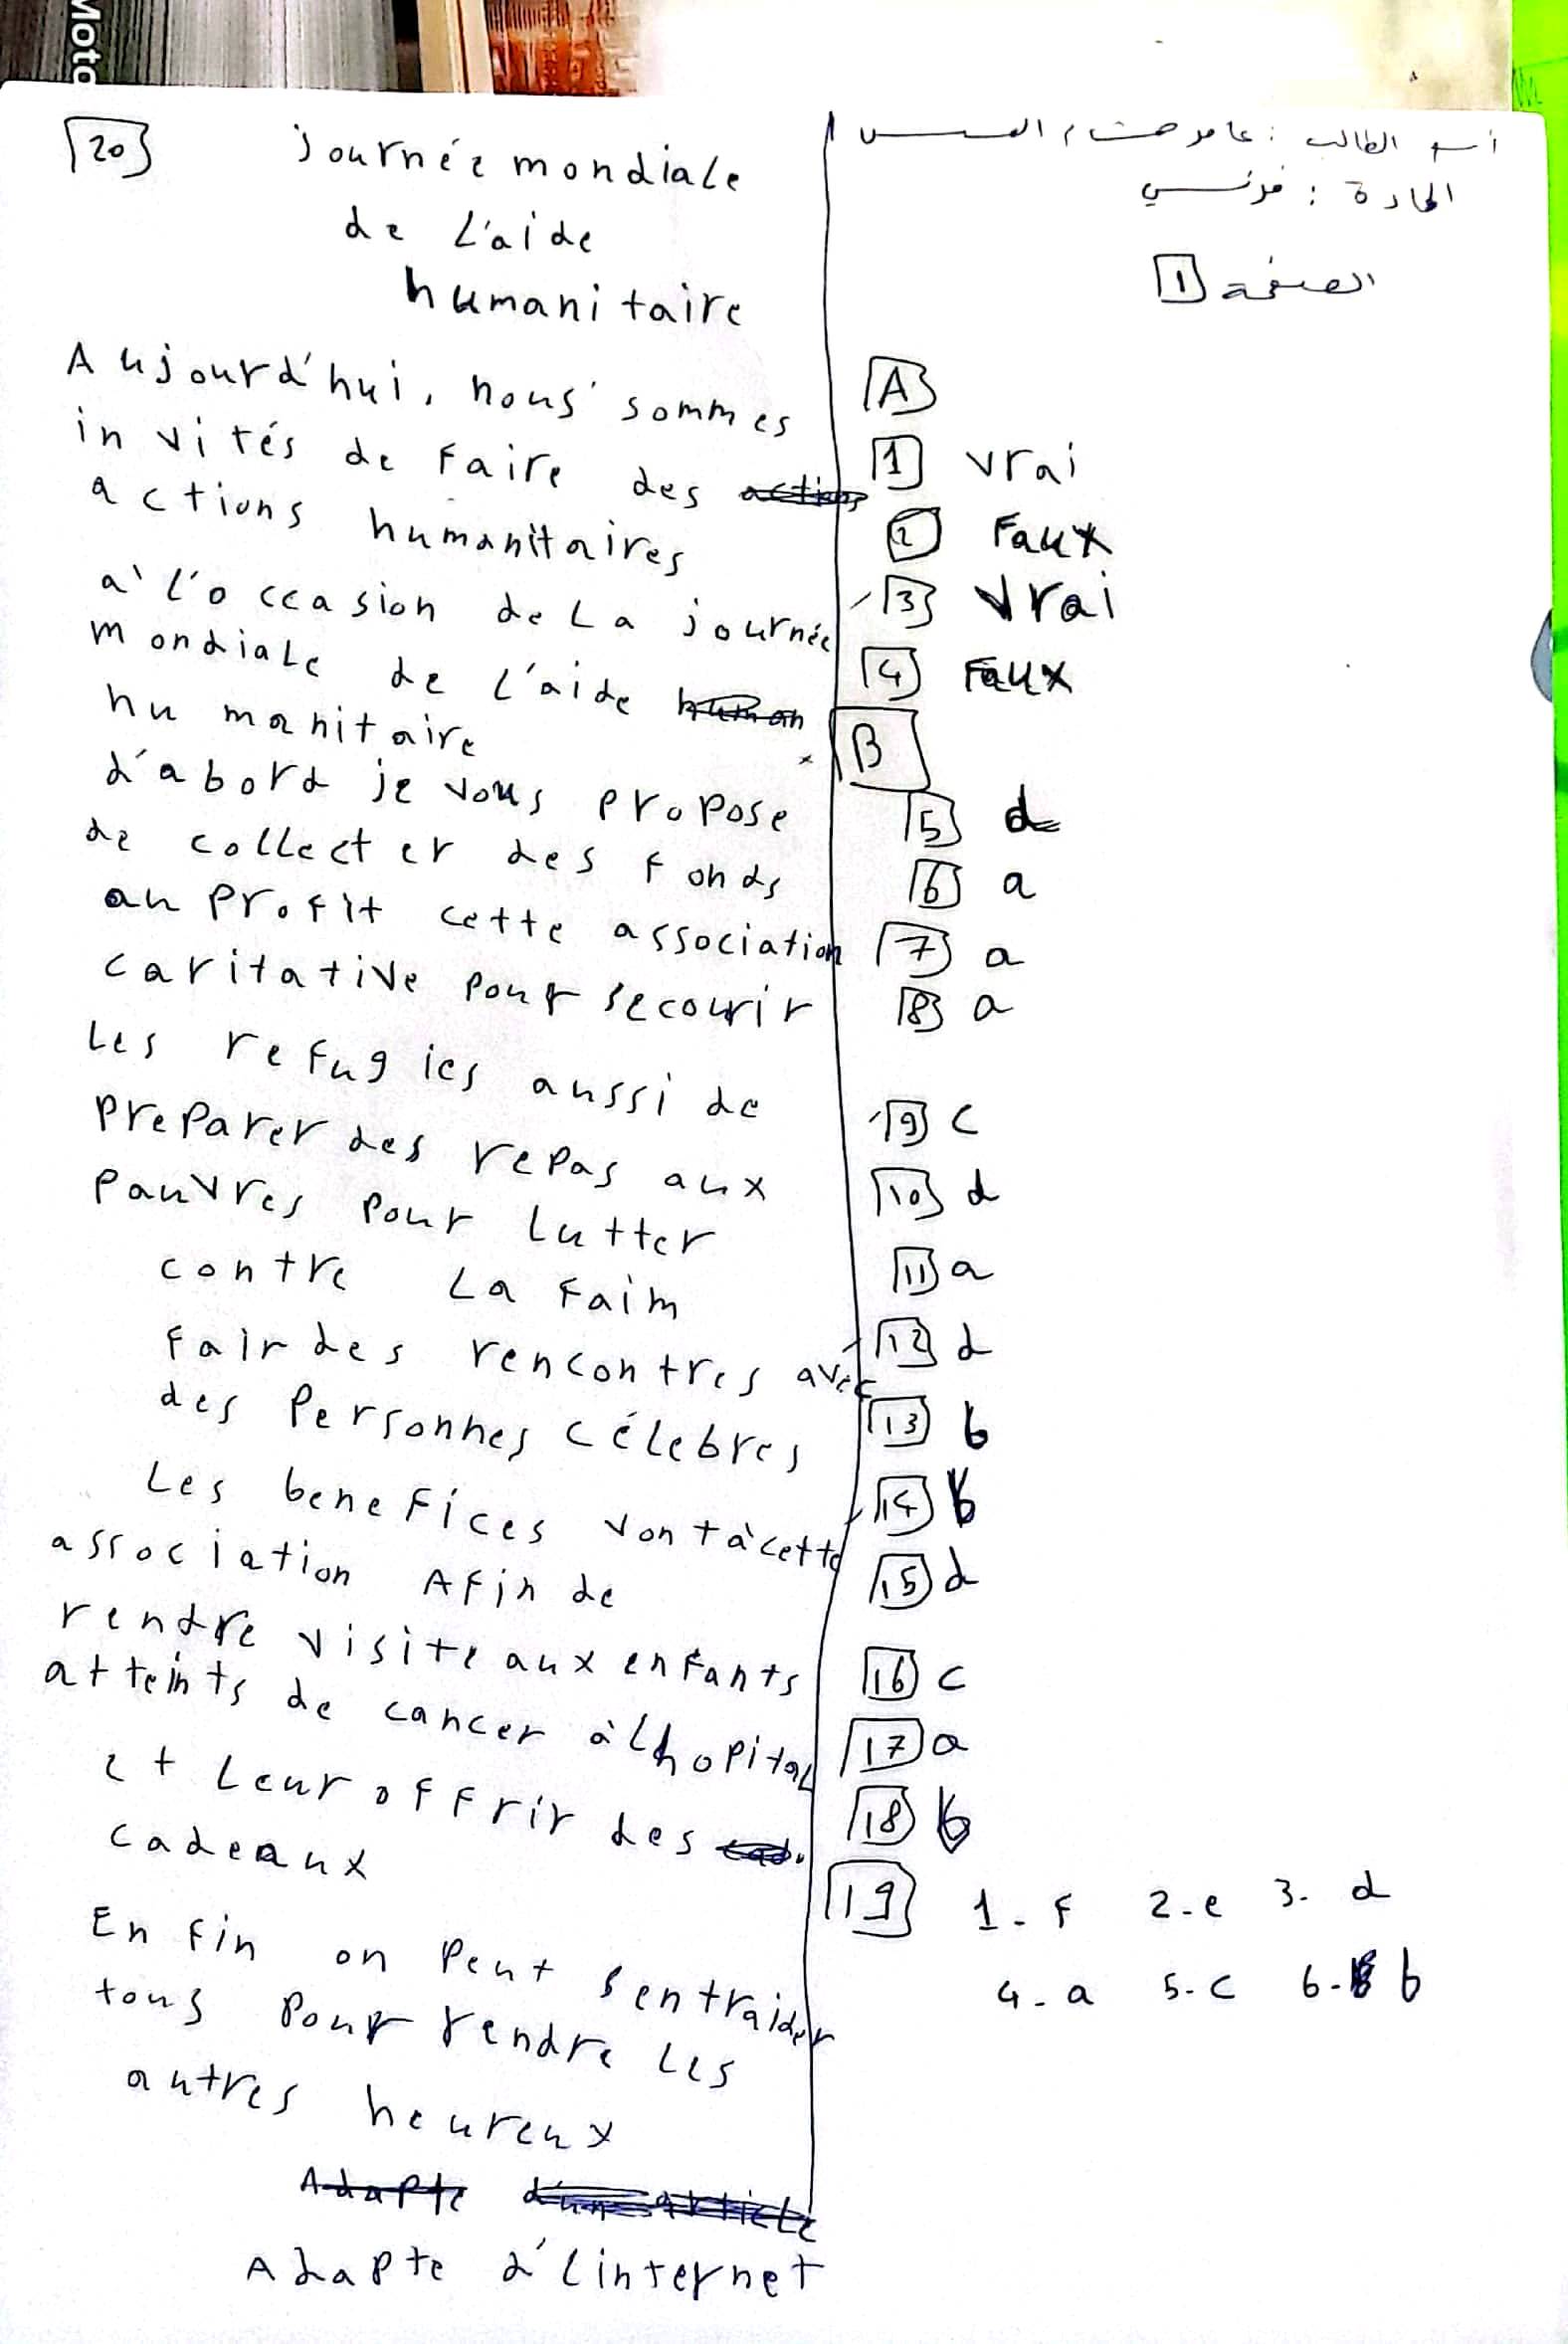 Moto
أسم الطالب : عامر حسام
المادة : فرنسي
الصفحة 1
A
1 vrai
2 Faux
3 Vrai
4 Faux
B
5 d
6 a
7 a
8 a
9 c
10 d
11 a
12 d
13 b
14 b
15 d
16 c
17 a
18 b
19 1-f 2-e 3-d
4-a 5-c 6-b
20 journée mondiale
de L'aide
humanitaire
Aujourd'hui, nous sommes
invités de faire des
actions humanitaires
a' l'occasion de La journée
mondiale de L'aide
humanitaire
d'abord je vous propose
de collecter des fonds
au profit cette association
caritative pour secourir
Les refugies aussi de
preparer des repas aux
pauvres pour Lutter
contre La Faim
Fair des rencontres avec
des Personnes célebres
Les benefices vont à cette
association Afin de
rendre visite aux enfants
atteints de cancer à lhopital
et Leur offrir des
cadeaux
En fin on peut sentraider
tous pour rendre Les
autres heureux
Adapte
Adapte d'Linternet